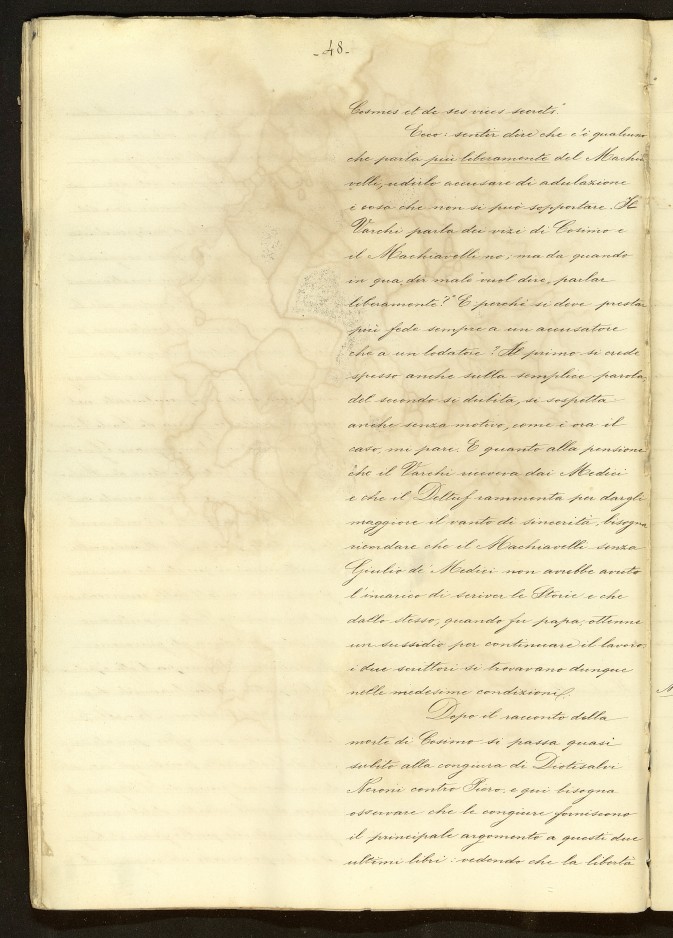 -48-
Cosmes et de ses vices secrets".
Ecco: sentir dire che c'è qualcuno
che parla più liberamente del Machia
velli, udirlo accusare di adulazione
è cosa che non si può sopportare. Il
Varchi parla dei vizi di Cosimo e
il Machiavelli no; ma da quando
in qua "dir male" vuol dire "parlar
liberamente?" E perchè si deve prestar
più fede sempre a un accusatore
che a un lodatore? Al primo si crede
spesso anche sulla semplice parola
del secondo si dubita, si sospetta
anche senza motivo, come è ora il
caso, mi pare. E quanto alla pensione
che il Varchi riceveva dai Medici
e che il Deltuf rammenta per dargli
maggiore il vanto di sincerità, bisogna
ricordare che il Machiavelli senza
Giulio de' Medici non avrebbe avuto
l'incarico di scriver le Storie e che
dallo stesso, quando fu papa, ottenne
un sussidio per continuare il lavoro:
i due scrittori si trovavano dunque
nelle medesime condizioni.
Dopo il racconto della
morte di Cosimo si passa quasi
subito alla congiura di Diotisalvi
Neroni contro Piero; e qui bisogna
osservare che le congiure forniscono
il principale argomento a questi due
ultimi libri: vedendo che la libertà